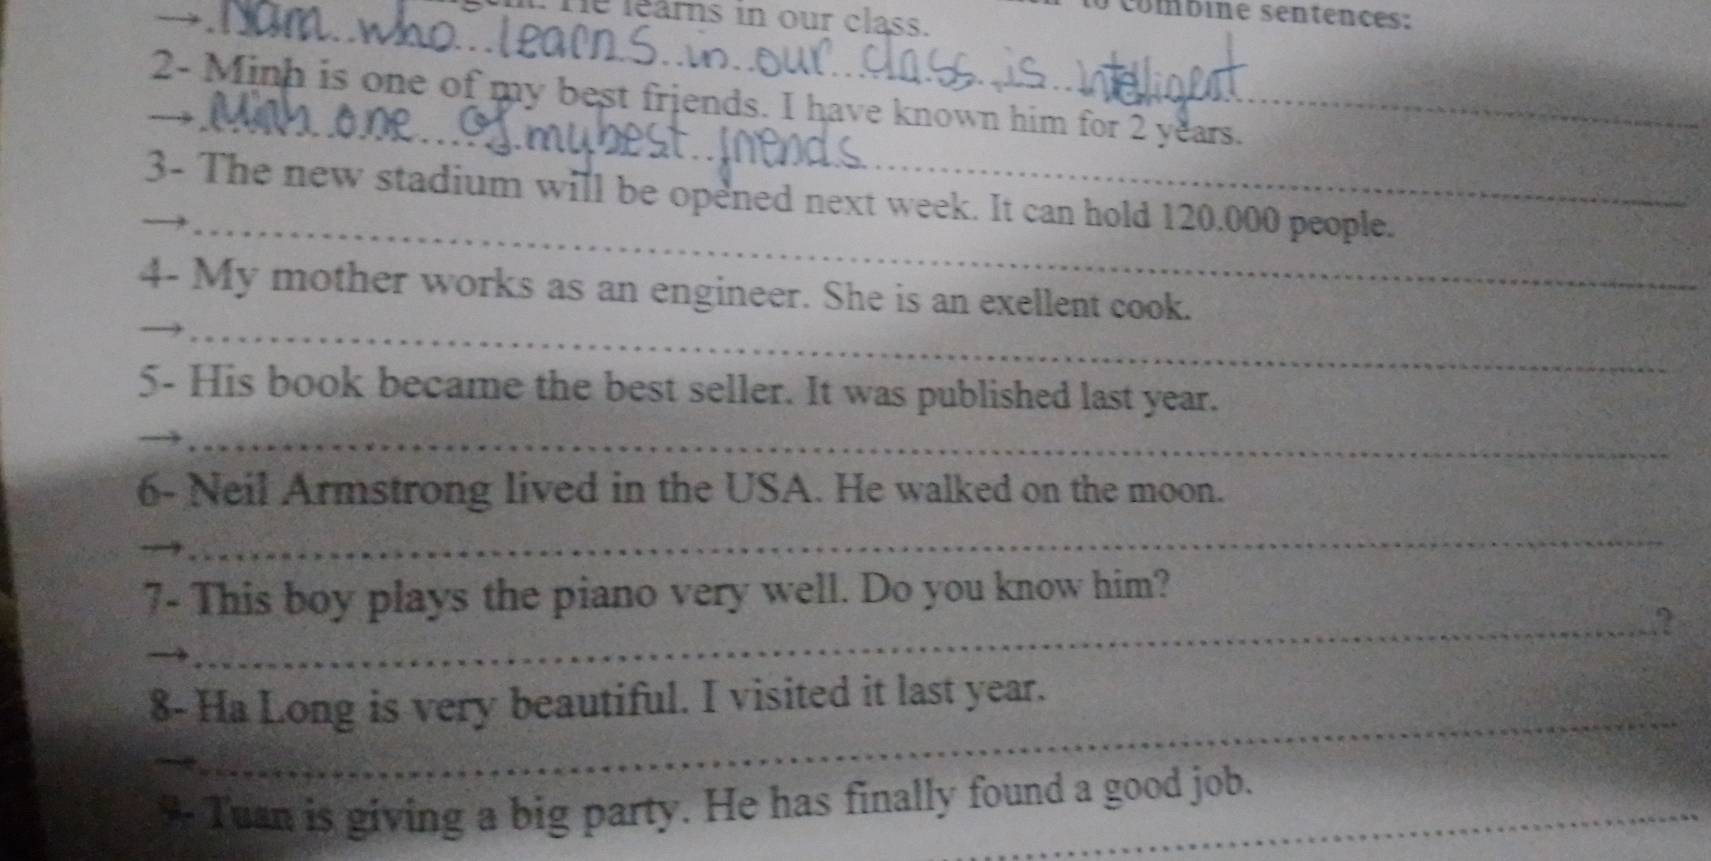 He learns in our class. to combine sentences:
→ Nam who learns in our class is intelligent
2- Minh is one of my best friends. I have known him for 2 years.
→ Minh one of my best friends
3- The new stadium will be opened next week. It can hold 120.000 people.
→
4- My mother works as an engineer. She is an exellent cook.
→
5- His book became the best seller. It was published last year.
→
6- Neil Armstrong lived in the USA. He walked on the moon.
→
7- This boy plays the piano very well. Do you know him?
→ ?
8- Ha Long is very beautiful. I visited it last year.
→
9- Tuan is giving a big party. He has finally found a good job.